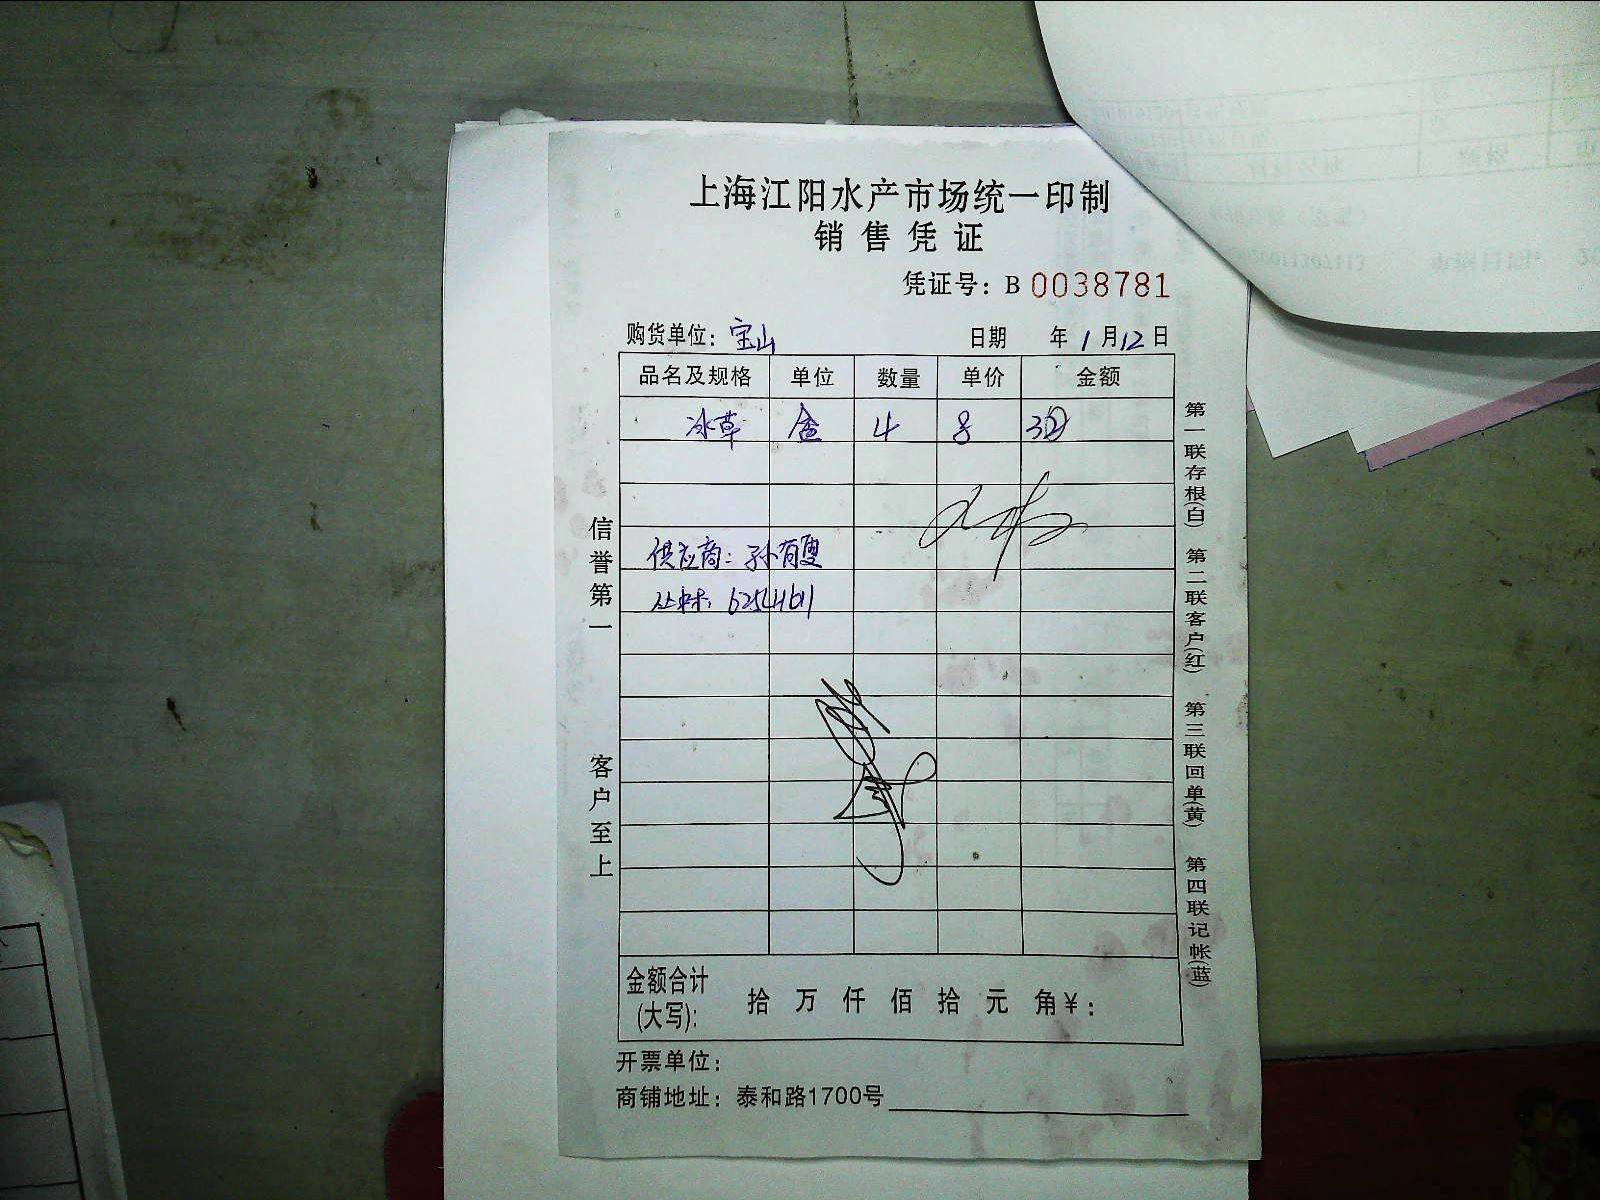 上海江阳水产市场统一印制
销售凭证
凭证号：B 0038781
购货单位：宝山 日期 年1月12日
品名及规格 单位 数量 单价 金额
冰草 盒 4 8 32
供应商：孙有
信誉第一 客户至上
第一联存根(白) 第二联客户(红) 第三联回单(黄) 第四联记帐(蓝)
金额合计
(大写)： 拾 万 仟 佰 拾 元 角¥：
开票单位：
商铺地址：泰和路1700号